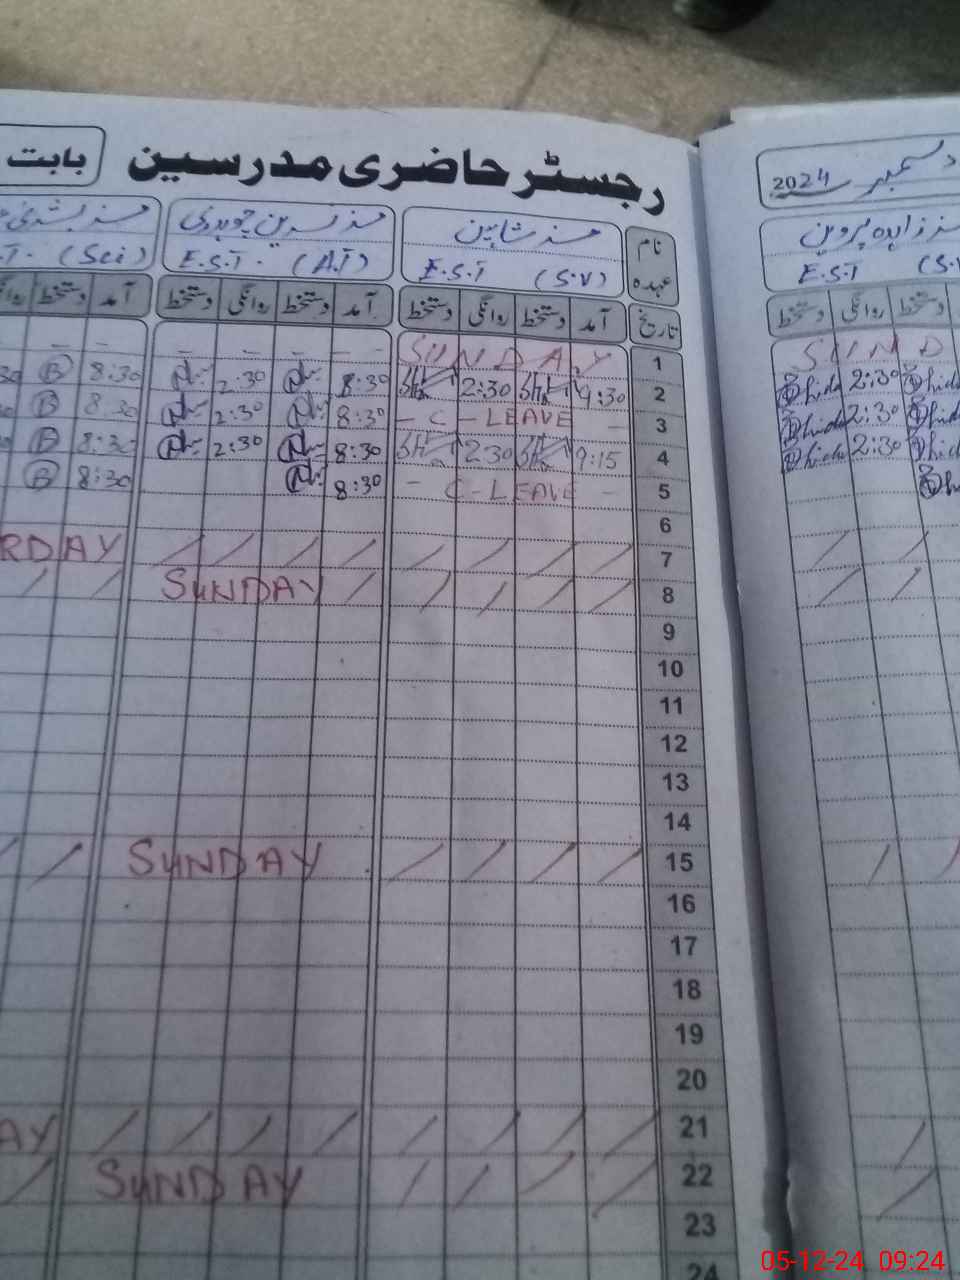 رجسٹر حاضری مدرسین
بابت
دسمبر 2024
نام مسز شاہین مسز نسرین چوہدری
عہدہ E.S.T (S.V) E.S.T. (A.T) .T. (Sci)
مسز زاہدہ پروین
E.S.T (S.V
تاریخ آمد دستخط روانگی دستخط آمد دستخط روانگی دستخط آمد دستخط
روانگی دستخط
1 SUNDAY
2 9:30 2:30 8:30 2:30 8:30
3 C-LEAVE 8:30 2:30 8:30
4 9:15 2:30 8:30 2:30 8:30
5 C-LEAVE 8:30 8:30
6
7 RDAY
8 SUNDAY
9
10
11
12
13
14
15 SUNDAY
16
17
18
19
20
21 AY
22 SUNDAY
23
24
SUND
2:30
2:30
2:30
05-12-24 09:24